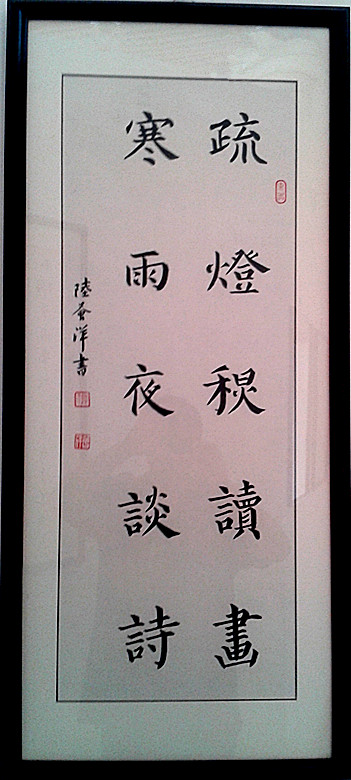 疏燈秋讀畫
寒雨夜談詩
陸洋書